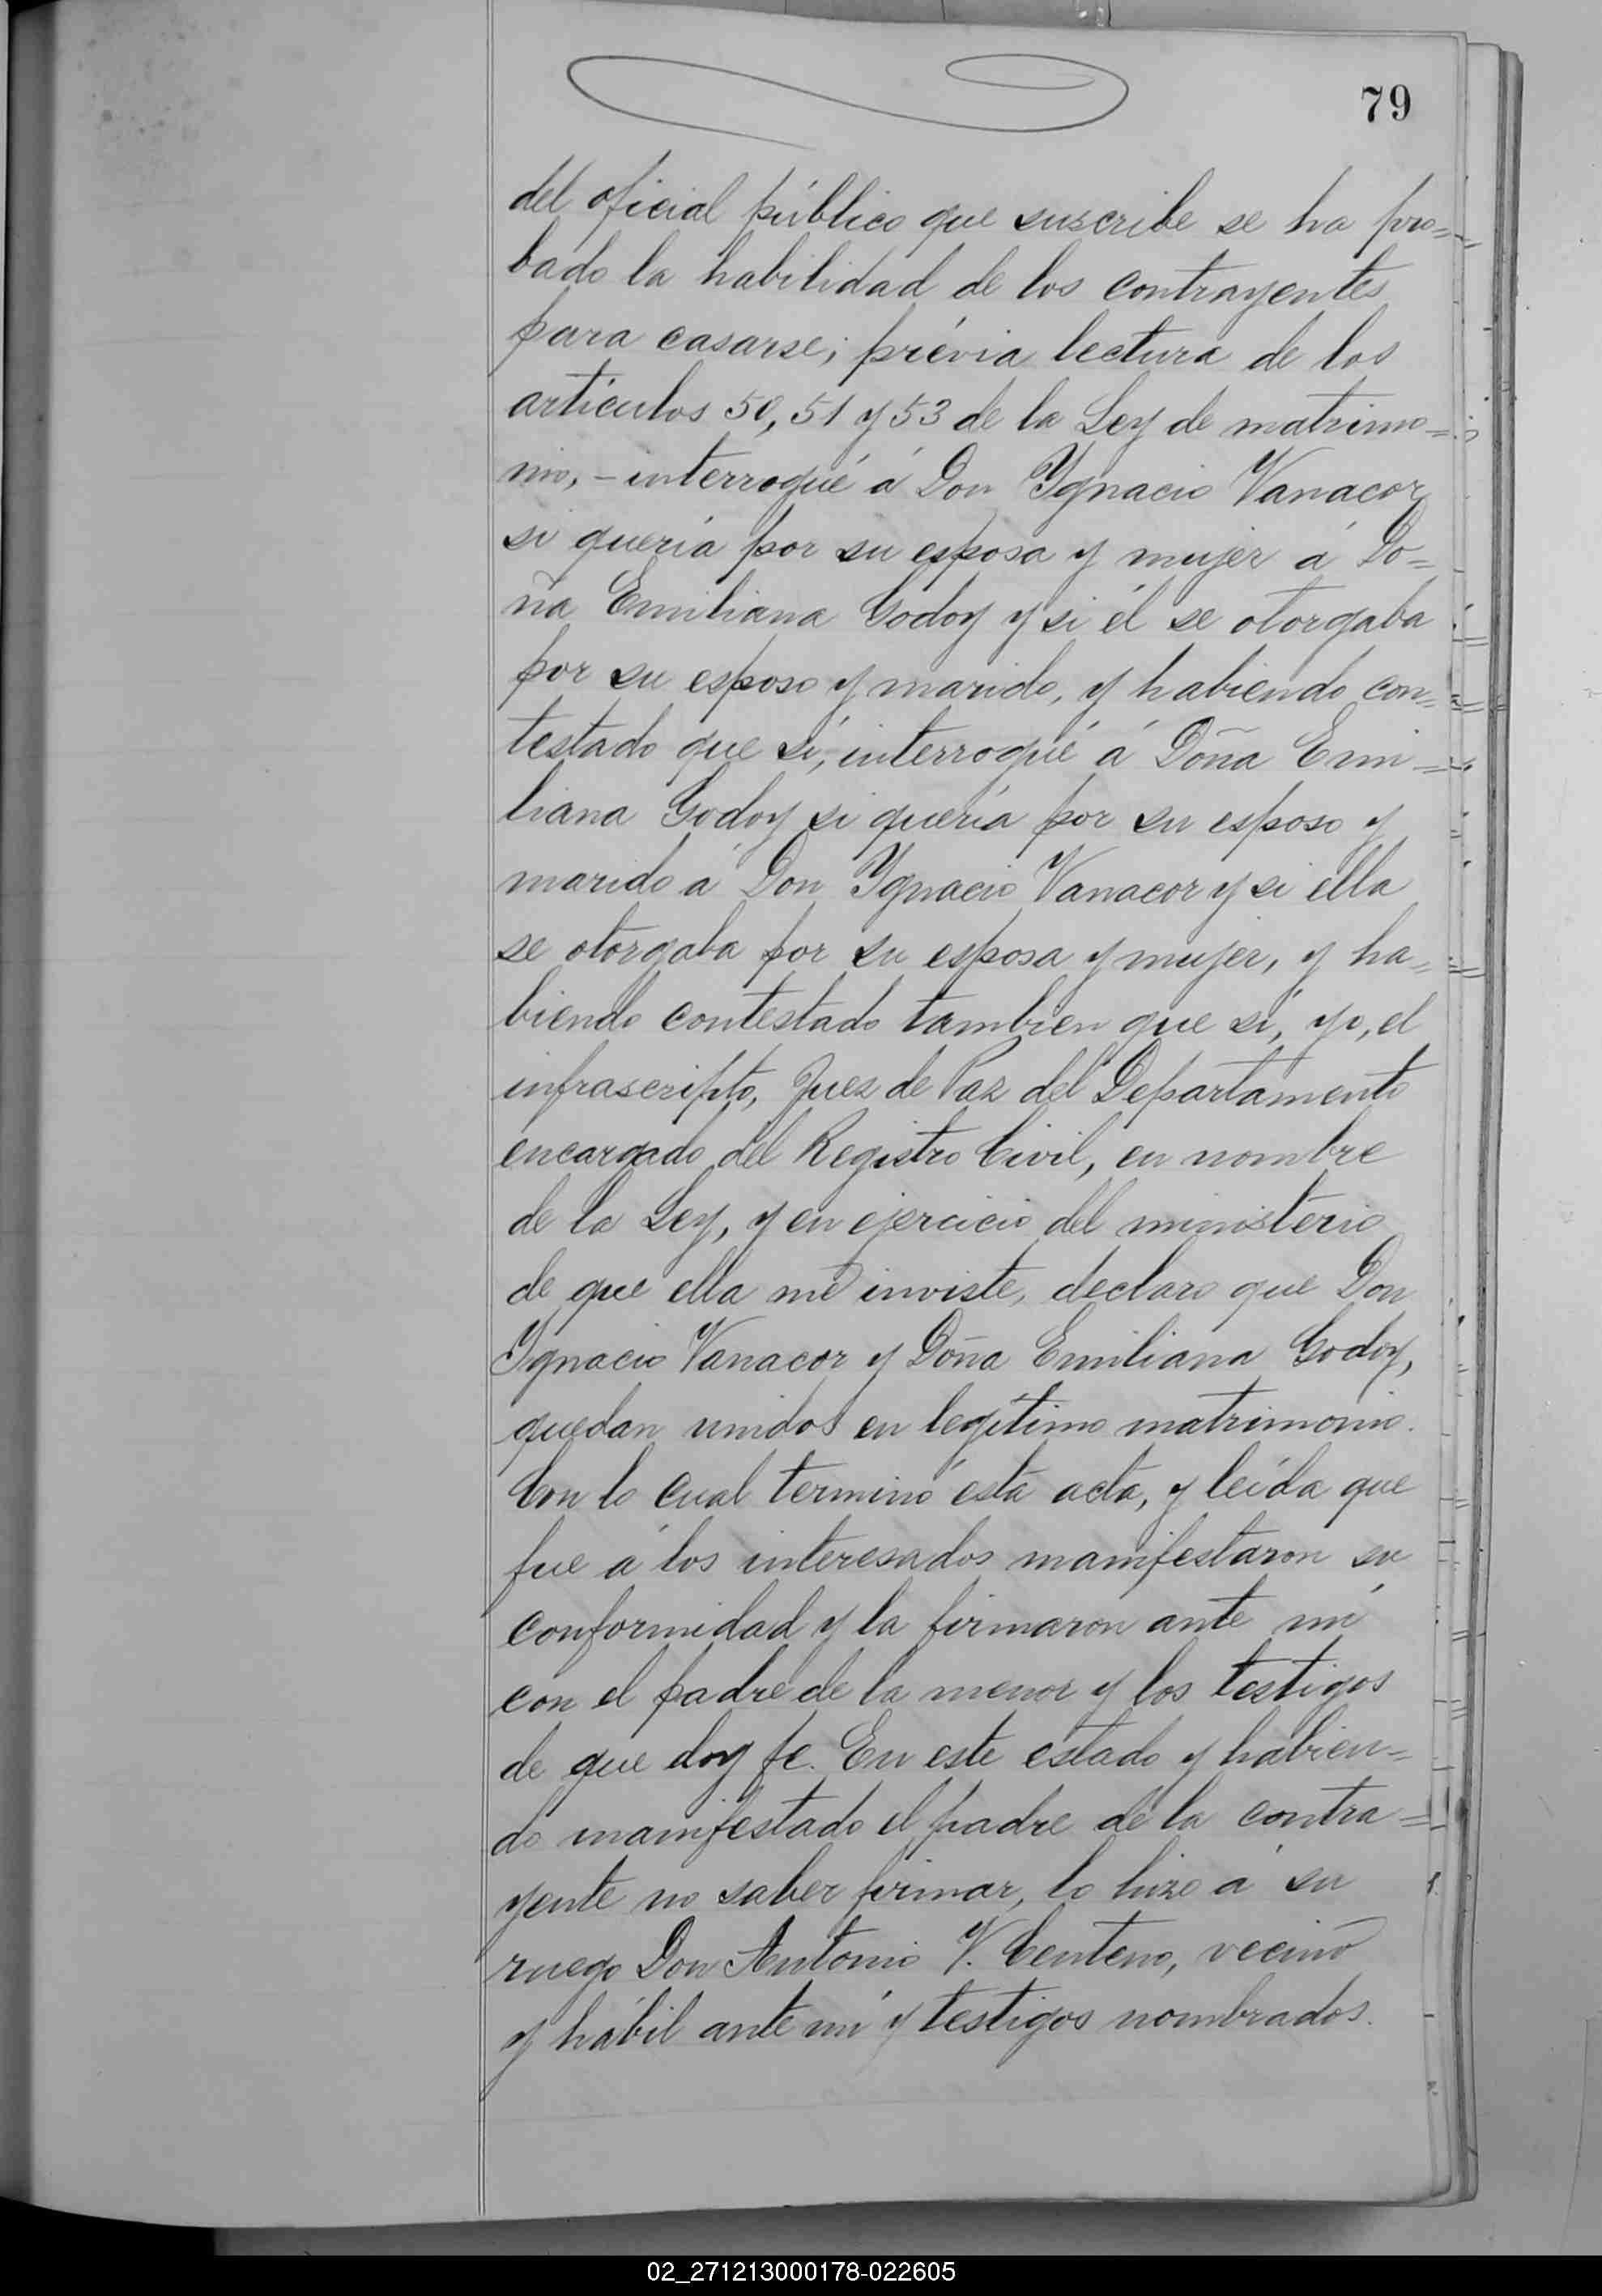 79
del oficial público que suscribe se ha pro=
bado la habilidad de los contrayentes
para casarse; prévia lectura de los
artículos 50, 51 y 53 de la Ley de matrimo=
nio, - interrogué á Don Ygnacio Vanacor
si quería por su esposa y mujer á Do=
ña Emiliana Godoy y si él se otorgaba
por su esposo y marido, y habiendo con=
testado que sí, interrogué á Doña Emi=
liana Godoy si quería por su esposo y
marido á Don Ygnacio Vanacor y si ella
se otorgaba por su esposa y mujer, y ha=
biendo contestado tambien que sí, yo, el
infrascripto, Juez de Paz del Departamento
encargado del Registro Civil, en nombre
de la Ley, y en ejercicio del ministerio
de que ella me inviste, declaro que Don
Ygnacio Vanacor y Doña Emiliana Godoy,
quedan unidos en legítimo matrimonio.
Con lo cual terminó esta acta, y leída que
fue á los interesados manifestaron su
conformidad y la firmaron ante mí
con el padre de la menor y los testigos
de que doy fe. En este estado y habien=
do manifestado el padre de la contra=
yente no saber firmar, lo hizo á su
ruego Don Antonio V. Centeno, vecino
y hábil ante mí y testigos nombrados.
02_271213000178-022605